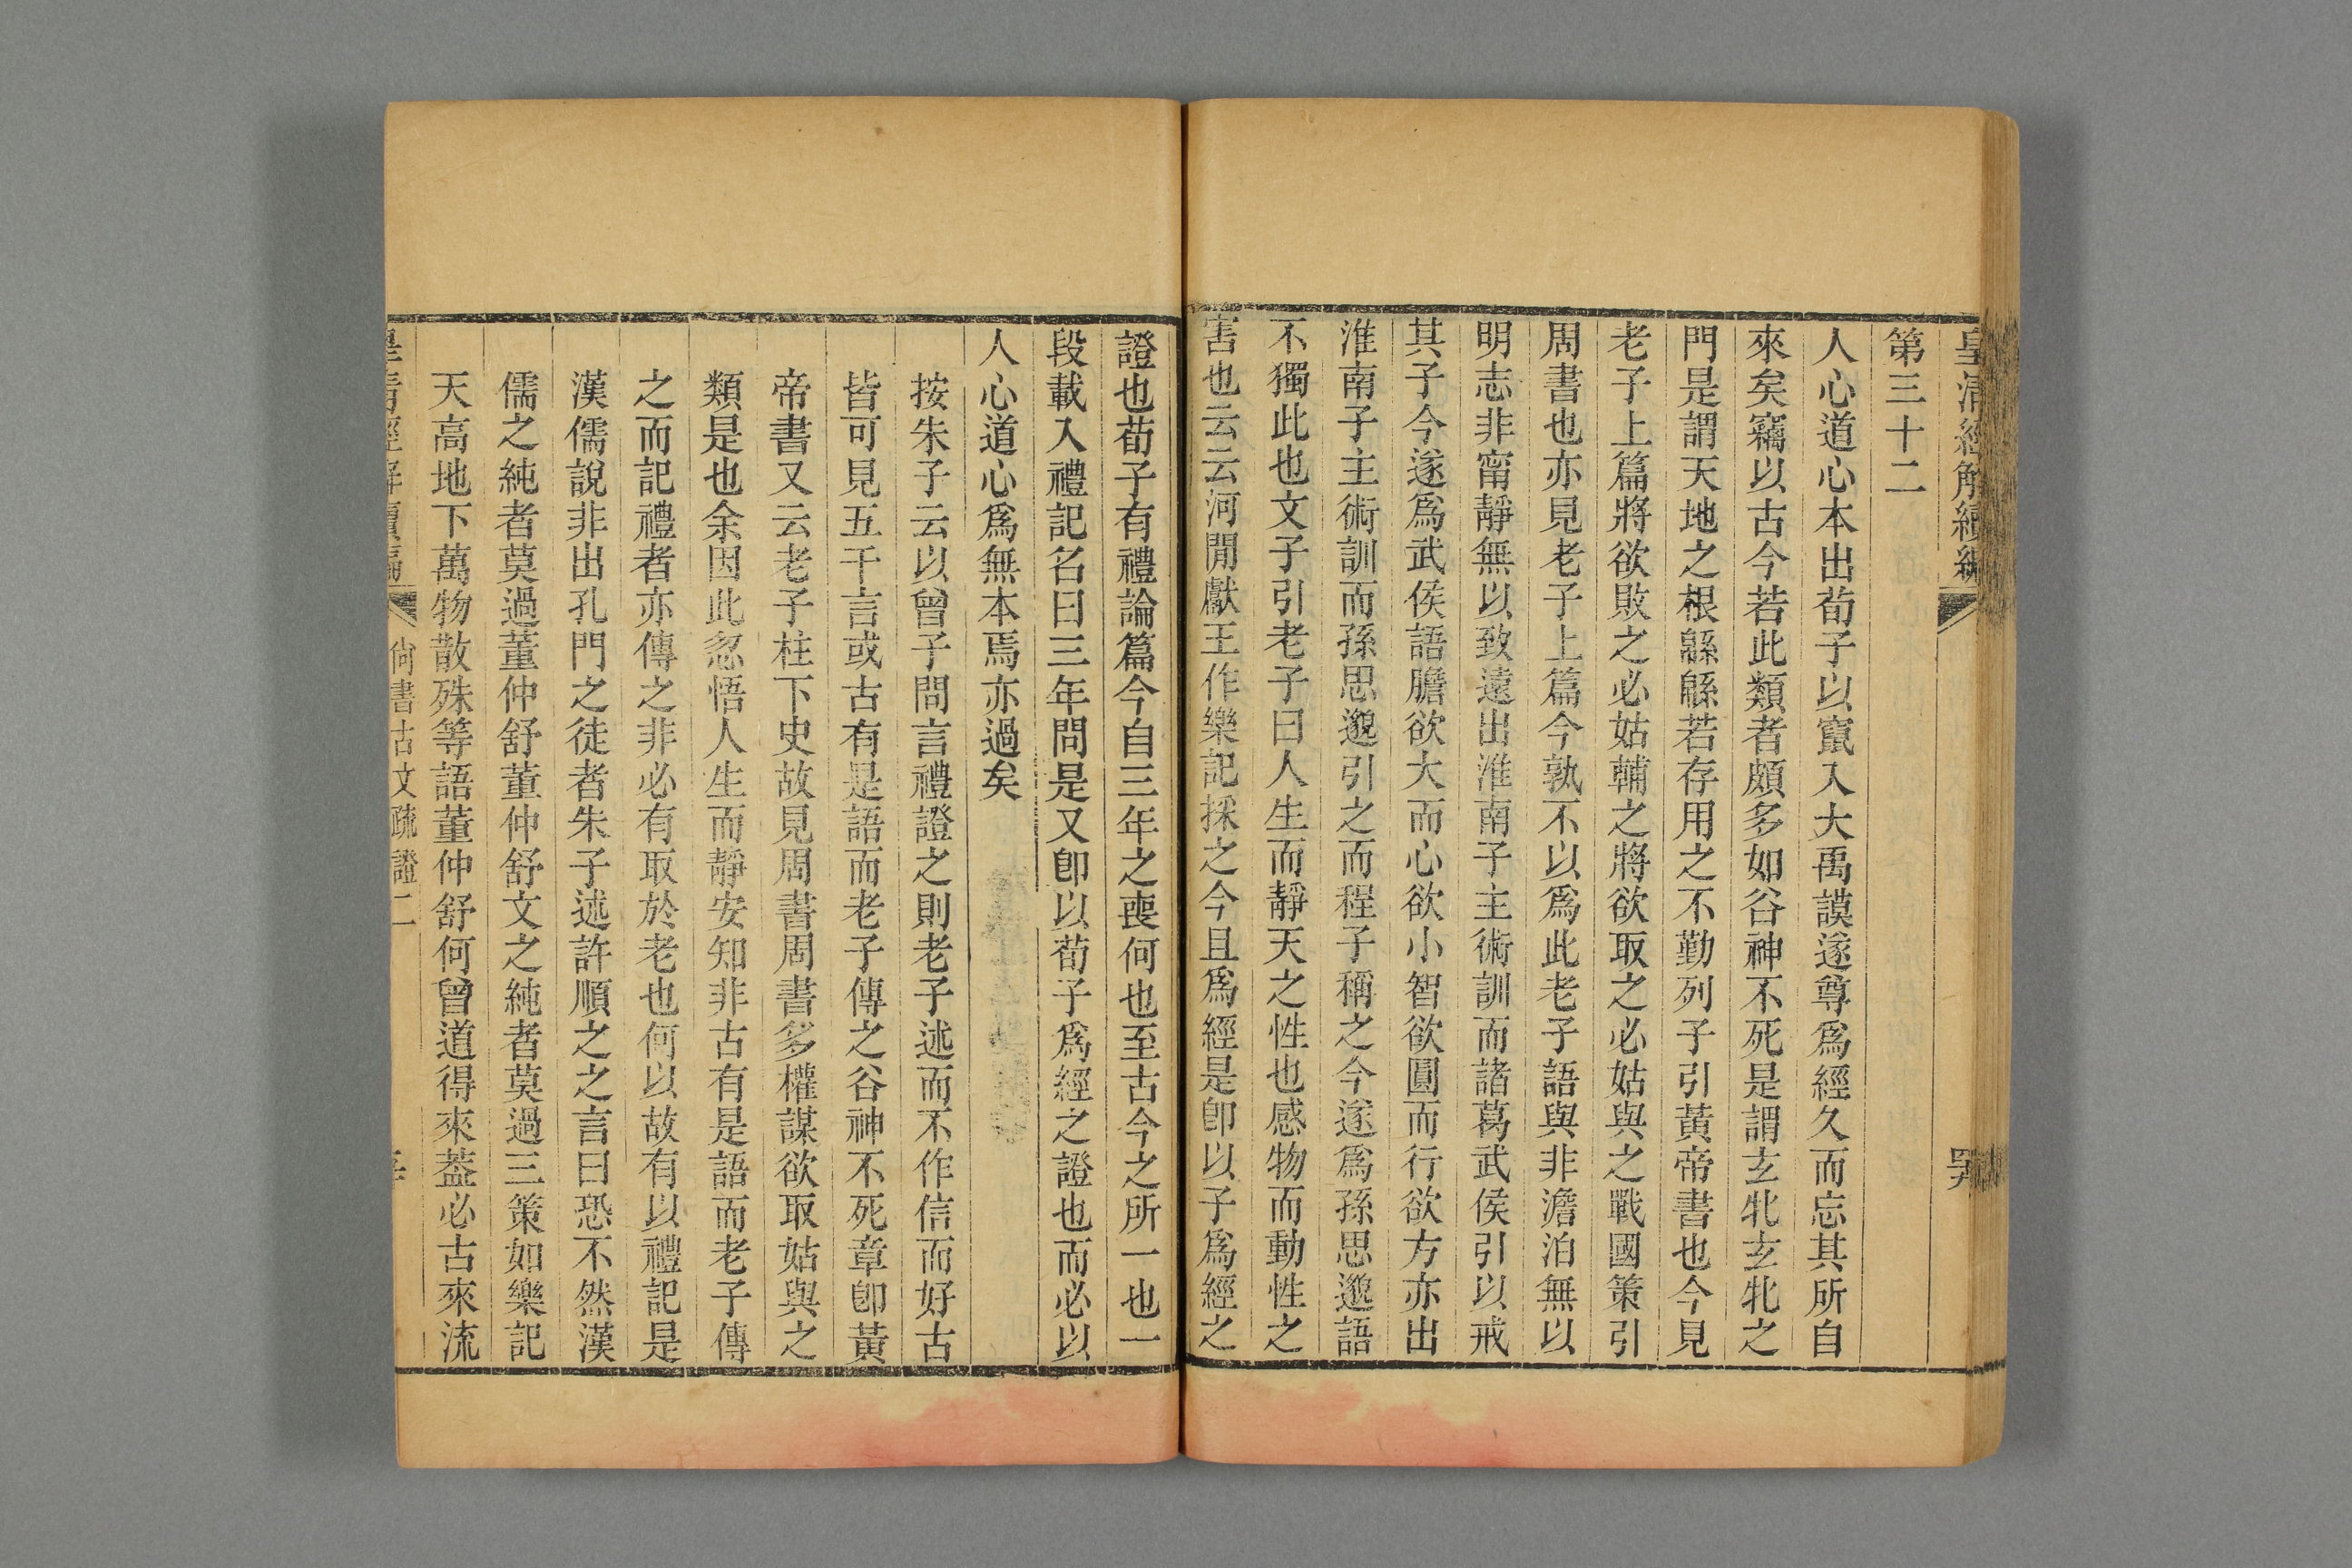 皇清經解續編
第三十二
人心道心本出荀子以竄入大禹謨遂尊爲經久而忘其所自
來矣竊以古今若此類者頗多如谷神不死是謂玄牝玄牝之
門是謂天地之根緜緜若存用之不勤列子引黃帝書也今見
老子上篇將欲敗之必姑輔之將欲取之必姑與之戰國策引
周書也亦見老子上篇今孰不以爲此老子語與非澹泊無以
明志非甯靜無以致遠出淮南子主術訓而諸葛武侯引以戒
其子今遂爲武侯語膽欲大而心欲小智欲圓而行欲方亦出
淮南子主術訓而孫思邈引之而程子稱之今遂爲孫思邈語
不獨此也文子引老子曰人生而靜天之性也感物而動性之
害也云云河閒獻王作樂記採之今且爲經是卽以子爲經之
證也荀子有禮論篇今自三年之喪何也至古今之所一也一
段載入禮記名曰三年問是又卽以荀子爲經之證也而必以
人心道心爲無本焉亦過矣
按朱子云以曾子問言禮證之則老子述而不作信而好古
皆可見五千言或古有是語而老子傳之谷神不死章卽黃
帝書又云老子柱下史故見周書周書多權謀欲取姑與之
類是也余因此忽悟人生而靜安知非古有是語而老子傳
之而記禮者亦傳之非必有取於老也何以故有以禮記是
漢儒說非出孔門之徒者朱子述許順之之言曰恐不然漢
儒之純者莫過董仲舒董仲舒文之純者莫過三策如樂記
天高地下萬物散殊等語董仲舒何曾道得來葢必古來流
皇清經解續編
尙書古文疏證二